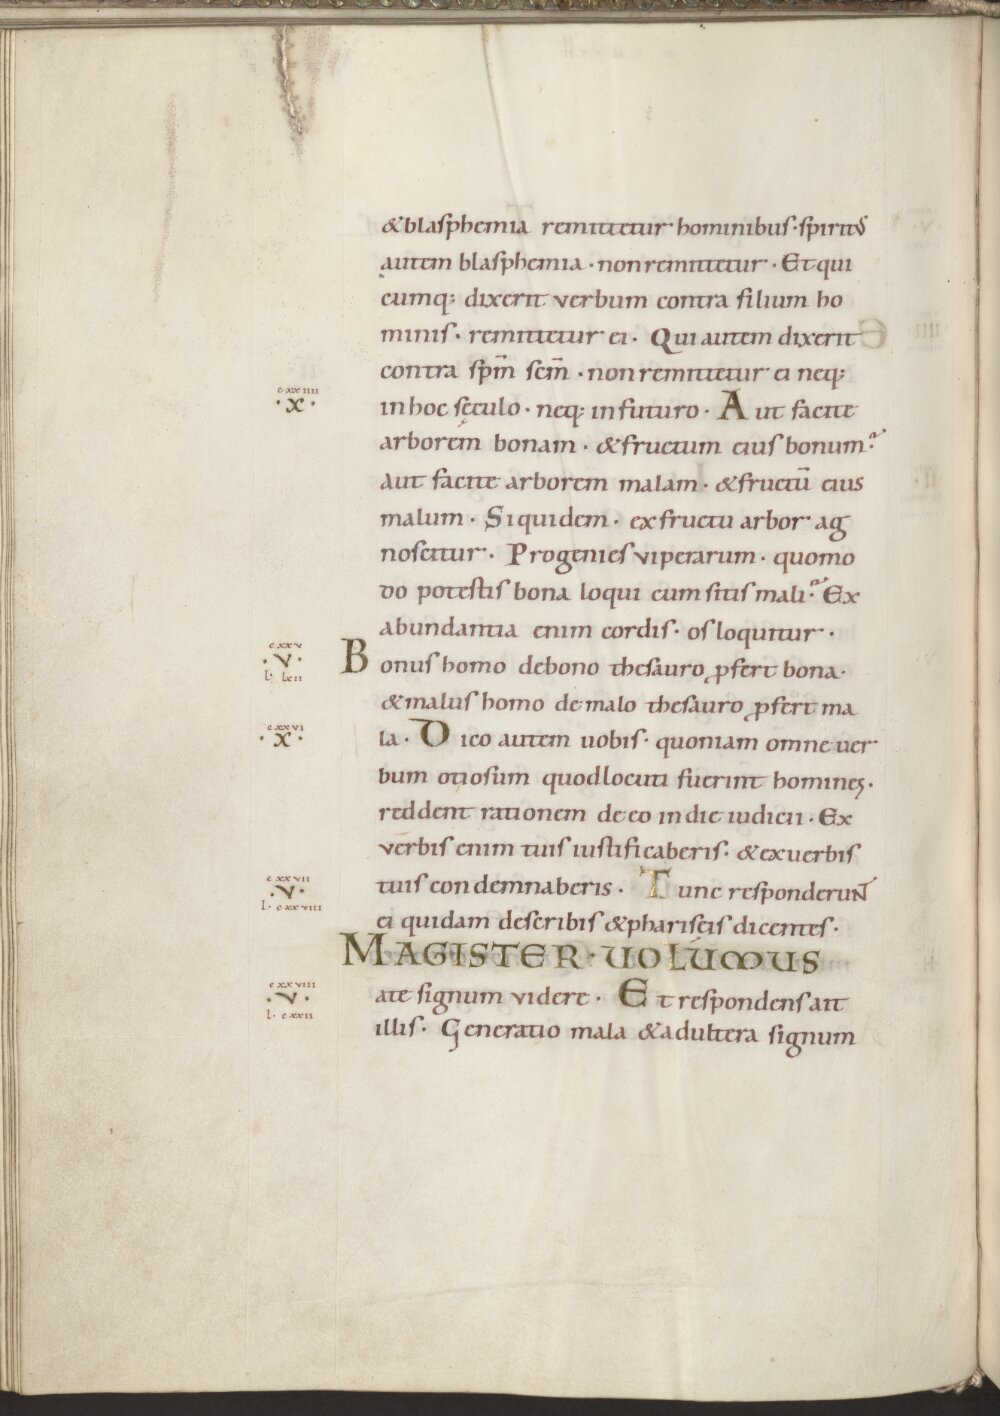 &blasphemia remittetur hominibus · spiritus
autem blasphemia · non remittetur · Et qui
cumq; dixerit verbum contra filium ho
minis · remittetur ei · Qui autem dixerit
contra spm̄ scm̄ · non remittetur ei neq;
cxxiiii
· x ·
in hoc sęculo · neq; in futuro · Aut facite
arborem bonam · & fructum eius bonum ·
aut facite arborem malam · & fructū eius
malum · Siquidem · ex fructu arbor ag
noscitur · Progenies viperarum · quomo
do potestis bona loqui cum sitis mali · Ex
abundantia enim cordis · os loquitur ·
cxxv
· v ·
l · lxii
Bonus homo de bono thesauro ꝓfert bona ·
& malus homo de malo thesauro ꝓfert ma
cxxvi
· x ·
la · Dico autem uobis · quoniam omne uer
bum otiosum quod locuti fuerint homines ·
reddent rationem de eo in die iudicii · Ex
verbis enim tuis iustificaberis · & ex uerbis
cxxvii
· v ·
l · cxxviii
tuis condemnaberis · Tunc responderunt
ei quidam de scribis & pharisęis dicentes ·
MAGISTER · UOLUMUS
cxxviii
· v ·
l · cxxii
a te signum videre · Et respondens ait
illis · Generatio mala & adultera signum